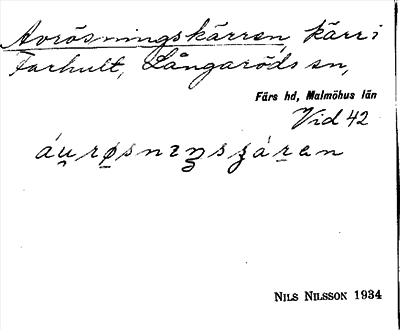 Avrösningskärren, kärr i
Farhult, Långaröds sn,
Färs hd, Malmöhus län
Vid 42
Nils Nilsson 1934